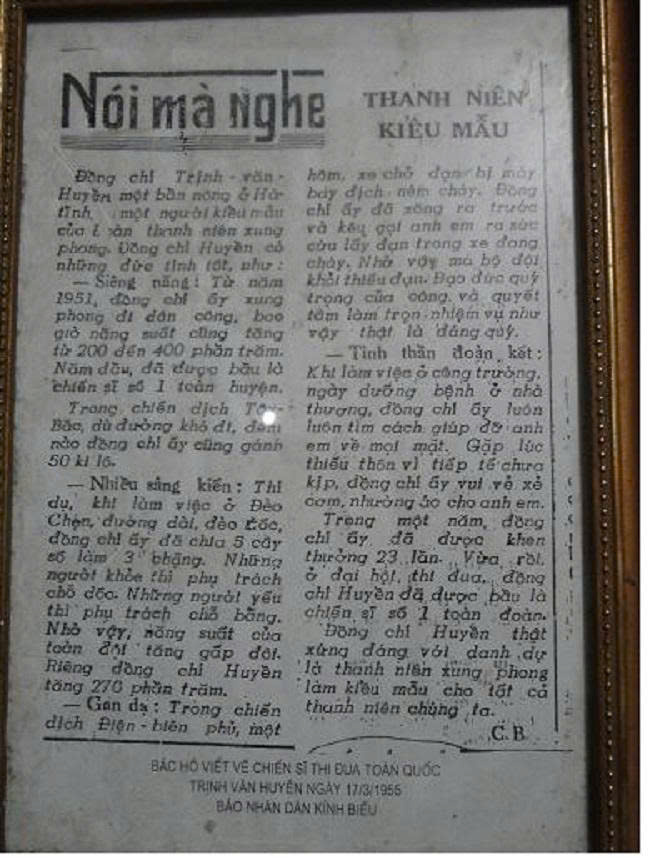 Nói mà nghe
THANH NIÊN
KIỂU MẪU
Đồng chí Trịnh-văn-
Huyền một bần nông ở Hà-
tĩnh, một người kiểu mẫu
của Đoàn thanh niên xung
phong. Đồng chí Huyền có
những đức tính tốt, như :
— Siêng năng : Từ năm
1951, đồng chí ấy xung
phong đi dân công, bao
giờ năng suất cũng tăng
từ 200 đến 400 phần trăm.
Năm đầu, đã được bầu là
chiến sĩ số 1 toàn huyện.
Trong chiến dịch Tây-
Bắc, dù đường khó đi, đêm
nào đồng chí ấy cũng gánh
50 ki lô.
— Nhiều sáng kiến : Thí
dụ, khi làm việc ở Đèo
Chẹn, đường dài, đèo dốc,
đồng chí ấy đã chia 5 cây
số làm 3 chặng. Những
người khỏe thì phụ trách
chỗ dốc. Những người yếu
thì phụ trách chỗ bằng.
Nhờ vậy, năng suất của
toàn đội tăng gấp đôi.
Riêng đồng chí Huyền
tăng 270 phần trăm.
— Gan dạ : Trong chiến
dịch Điện-biên phủ, một
hôm, xe chở đạn bị máy
bay địch ném cháy. Đồng
chí ấy đã xông ra trước
và kêu gọi anh em ra sức
cứu lấy đạn trong xe đang
cháy. Nhờ vậy mà bộ đội
khỏi thiếu đạn. Đạo đức quý
trọng của công và quyết
tâm làm trọn nhiệm vụ như
vậy thật là đáng quý.
— Tinh thần đoàn kết :
Khi làm việc ở công trường,
ngày dưỡng bệnh ở nhà
thương, đồng chí ấy luôn
luôn tìm cách giúp đỡ anh
em về mọi mặt. Gặp lúc
thiếu thốn vì tiếp tế chưa
kịp, đồng chí ấy vui vẻ xẻ
cơm, nhường áo cho anh em.
Trong một năm, đồng
chí ấy đã được khen
thưởng 23 lần. Vừa rồi,
ở đại hội thi đua, đồng
chí Huyền đã được bầu là
chiến sĩ số 1 toàn đoàn.
Đồng chí Huyền thật
xứng đáng với danh dự
là thanh niên xung phong
làm kiểu mẫu cho tất cả
thanh niên chúng ta.
C.B
BÁC HỒ VIẾT VỀ CHIẾN SĨ THI ĐUA TOÀN QUỐC
TRỊNH VĂN HUYỀN NGÀY 17/3/1955
BÁO NHÂN DÂN KÍNH BIẾU